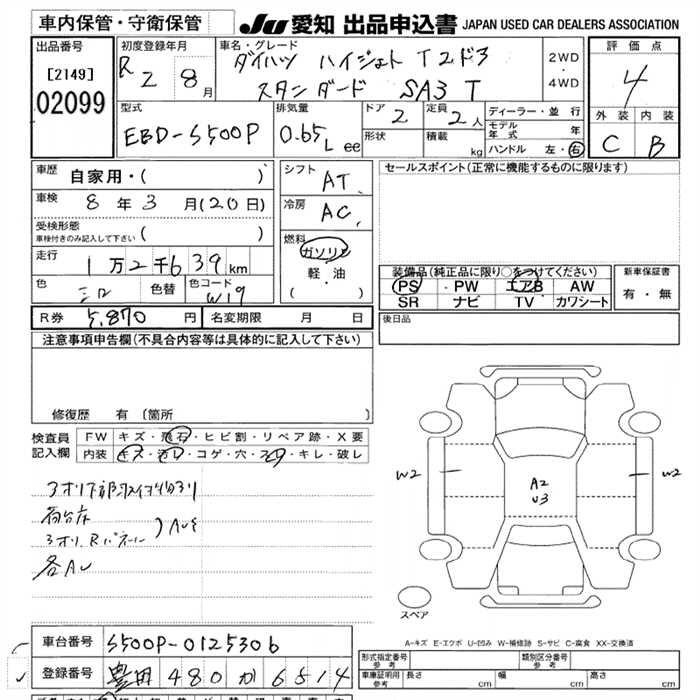 車内保管・守衛保管
JU 愛知 出品申込書 JAPAN USED CAR DEALERS ASSOCIATION
出品番号
[2149]
02099
初度登録年月
R 2 8月
車名・グレード
ダイハツ ハイジェット T 2ドア
スタンダード SA3 T
2WD
・
4WD
評価点
4
外装 内装
C B
型式
EBD-S500P
排気量
0.65L cc
ドア 2
形状
定員 2人
積載 kg
ディーラー・並行
モデル年式 年
ハンドル 左・右
車歴
自家用・( )
車検
8年3月(20日)
受検形態
車検付きのみ記入して下さい ( )
走行
1万2千639km
色
シロ
色替
色コード
W19
シフト
AT
冷房
AC
燃料
ガソリン
軽・油
( )
セールスポイント(正常に機能するものに限ります)
装備品(純正品に限り○をつけてください)
PS・PW・エアB・AW
SR・ナビ・TV・カワシート
新車保証書
有・無
R券 5,870円
名変期限 月 日
後日品
注意事項申告欄(不具合内容等は具体的に記入して下さい)
修復歴 有 〔箇所 〕
検査員
記入欄
FW キズ・飛石・ヒビ割・リペア跡・X要
内装 キズ・汚レ・コゲ・穴・スレ・キレ・破レ
荷台床
各AU
W2
W2
A2
U3
スペア
A-キズ E-エクボ U-凹み W-補修跡 S-サビ C-腐食 XX-交換済
車台番号 S500P-0125306
登録番号 豊田 480 か 6514
形式指定番号
参考
類別区分番号
参考
車庫証明用
参考
長さ cm
幅 cm
高さ cm